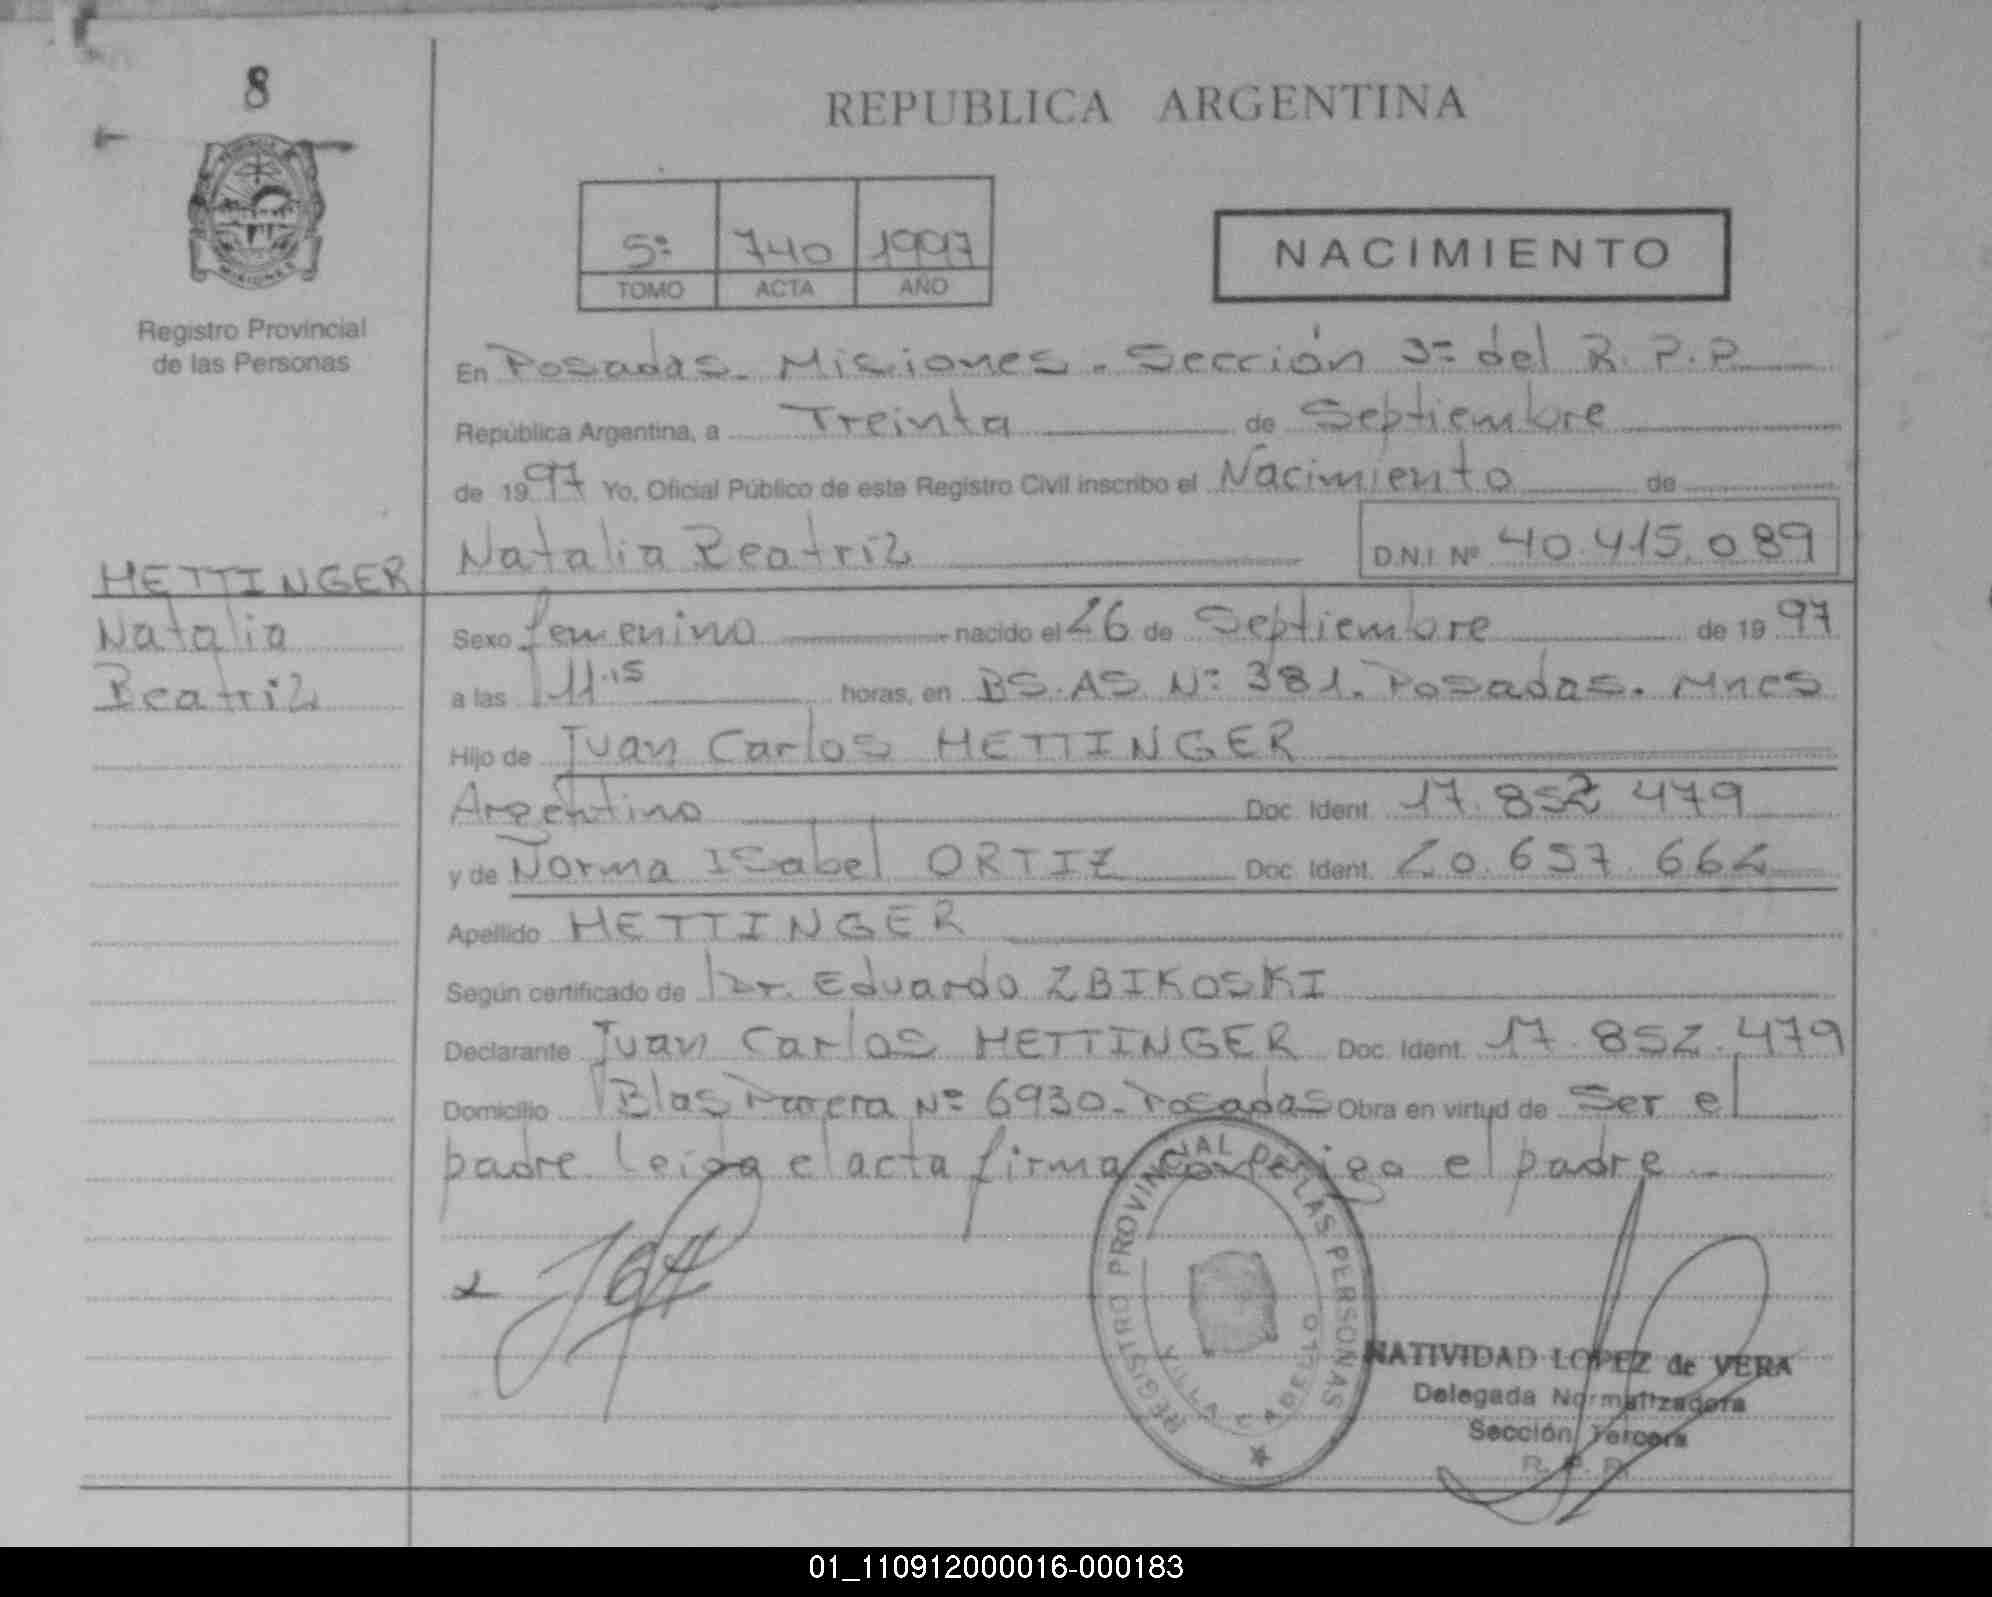 8
REPUBLICA ARGENTINA
5º 740 1997
TOMO ACTA AÑO
NACIMIENTO
MISIONES
Registro Provincial
de las Personas
En Posadas. Misiones. Sección 3ª del R.P.P.
República Argentina, a Treinta de Septiembre
de 1997 Yo, Oficial Público de este Registro Civil inscribo el Nacimiento de
Natalia Beatriz D.N.I. Nº 40.415.089
HETTINGER
Natalia
Beatriz
Sexo femenino nacido el 26 de Septiembre de 1997
a las 11.15 horas, en BS.AS Nº 381. Posadas. Mnes
Hijo de Juan Carlos HETTINGER
Argentino Doc. Ident. 17.852 479
y de Norma Isabel ORTIZ Doc. Ident. 20.657.662
Apellido HETTINGER
Según certificado de Dr. Eduardo ZBIKOSKI
Declarante Juan Carlos HETTINGER Doc. Ident. 17.852.479
Domicilio Blas Parera Nº 6930. Posadas Obra en virtud de Ser el
padre Leida el acta firma conmigo el padre
REGISTRO PROVINCIAL DE LAS PERSONAS
VILLA CABELLO
NATIVIDAD LOPEZ de VERA
Delegada Normalizadora
Sección Tercera
R. P. P.
01_110912000016-000183